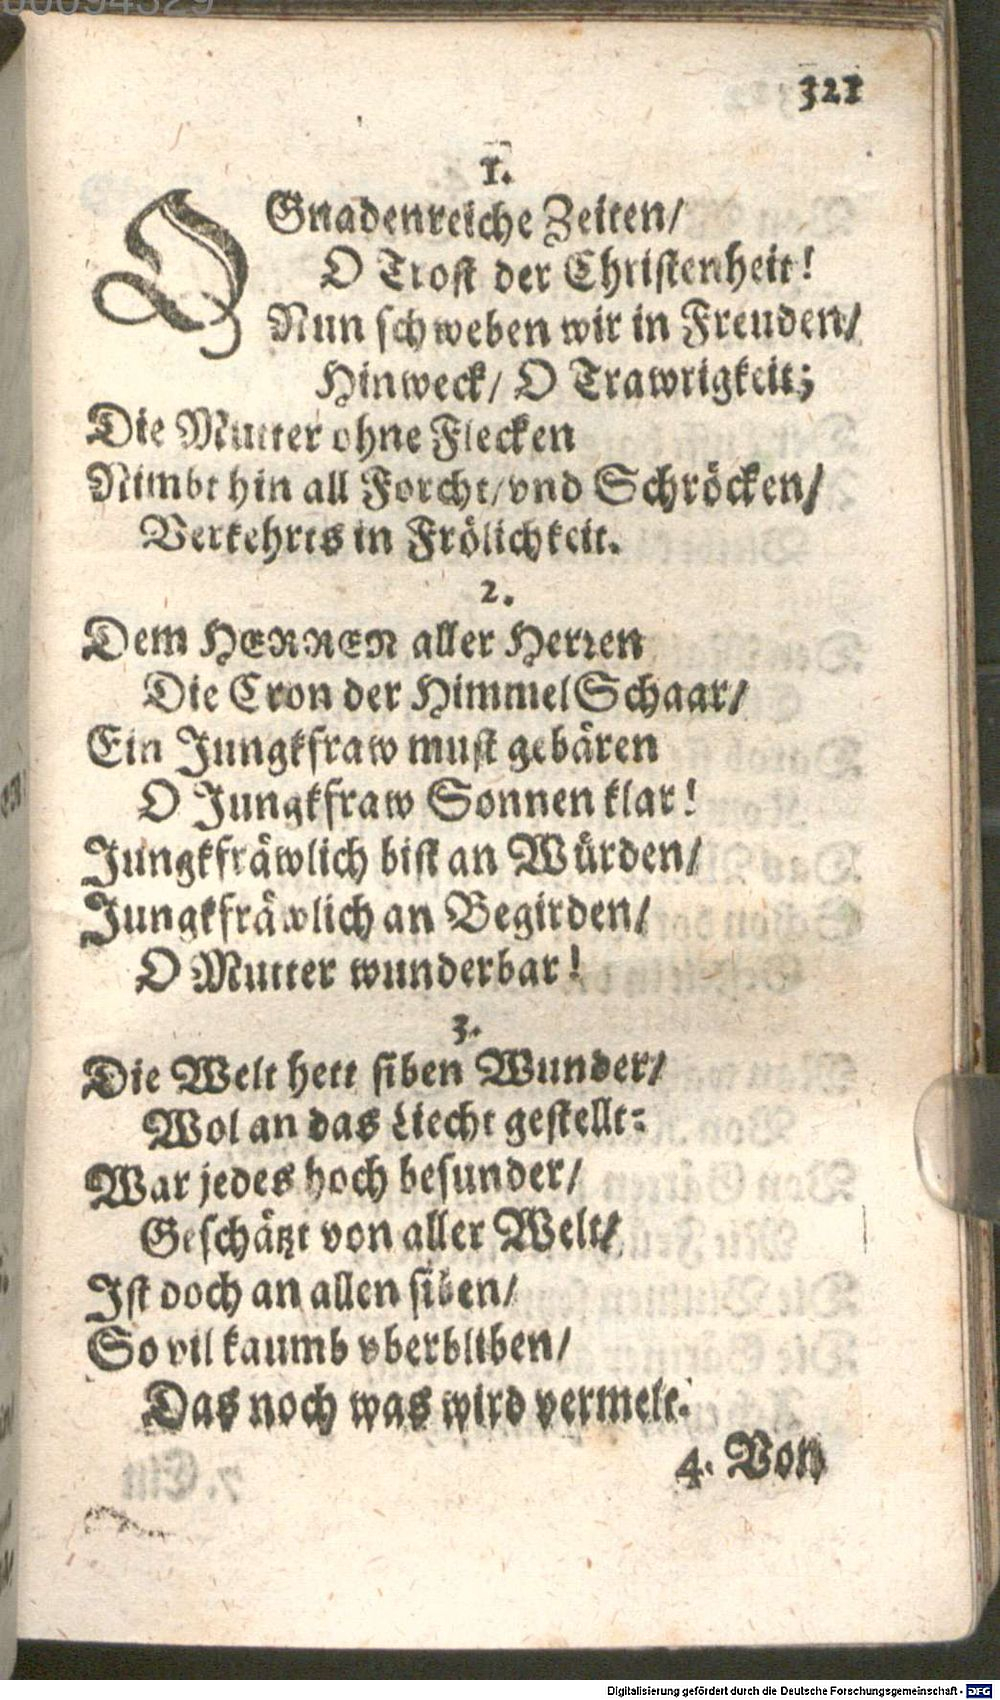 00094329
321
1.
O Gnadenreiche Zeiten/
O Trost der Christenheit!
Nun schweben wir in Freuden/
Hinweck/ O Trawrigkeit;
Die Mutter ohne Flecken
Nimbt hin all Forcht/ vnd Schröcken/
Verkehrts in Frölichkeit.
2.
Dem HERREN aller Herren
Die Cron der Himmel Schaar/
Ein Jungkfraw must gebären
O Jungkfraw Sonnen klar!
Jungkfräwlich bist an Würden/
Jungkfräwlich an Begirden/
O Mutter wunderbar!
3.
Die Welt hett siben Wunder/
Wol an das Liecht gestellt:
War jedes hoch besunder/
Geschätzt von aller Welt/
Ist doch an allen siben/
So vil kaumb vberbliben/
Das noch was wird vermelt.
4. Von
Digitalisierung gefördert durch die Deutsche Forschungsgemeinschaft - DFG